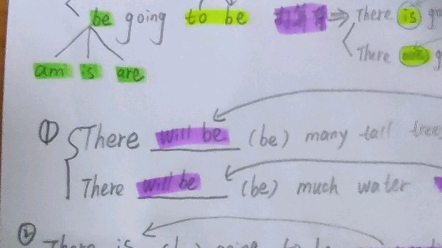 be going to be ⇒ There is
am is are There
① There will be (be) many tall trees
There will be (be) much water
② There is going to be